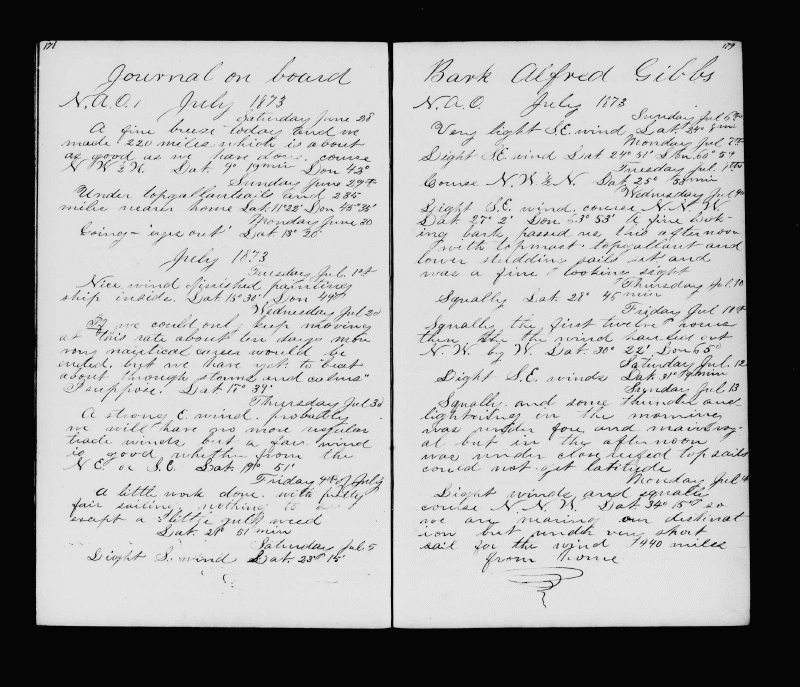 178
Journal on board
N.A.O. July 1873
Saturday June 28
A fine breeze today and we
made 220 miles which is about
as good as we have done. course
N W ½ N. Lat. 9° 19 min Lon 43°
Sunday June 29th
Under topgallantsails and 235
miles nearer home Lat. 11° 22' Lon 45° 36'
Monday June 30
Going "eyes out" Lat 13° 20'
July 1873
Tuesday Jul. 1st
Nice wind finished painting
ship inside. Lat 15° 30' Lon 49°
Wednesday Jul 2d
If we could only keep moving
at this rate about ten days more
my nautical cares would be
ended, but we have yet to beat
about through storms and calms"
I suppose. Lat. 17° 39'
Thursday Jul 3d
A strong E. wind. probably
we will have no more regular
trade winds but a fair wind
is good whether from the
N E. or S.E. Lat. 19° 51'
Friday 4th of July
A little work done with pretty
fair sailing, nothing to
except a little gulf weed
Lat. 21° 51 min
Saturday Jul 5
Light S. wind Lat. 23° 15'
179
Bark Alfred Gibbs
N.A.O. July 1873
Sunday Jul 6th
Very light S.E. wind Lat. 24° 8 min
Monday Jul. 7th
Light S.E. wind Lat 24° 51' Lon 60° 54'
Tuesday Jul. 8th
Course N.W. ½ N. Lat 25° 55 min
Wednesday Jul 9th
Light S.E. wind. course N.N.W
Lat. 27° 2' Lon 53' A fine look-
ing bark passed us this afternoon
with topmast topgallant and
lower studding sails set and
was a fine looking sight
Thursday Jul 10
Squally Lat. 28° 45 min
Friday Jul 11th
Squally the first twelve hours
then the wind hauled out
N.W. by W. Lat. 30° 22' Lon 65°
Saturday Jul. 12
Light S.E. winds Lat. 31° 19 min
Sunday Jul 13
Squally and some thunder and
lightning in the morning
was under fore and main voy-
al but in the afternoon
was under close reefed topsails
could not get latitude
Monday Jul
Light winds and squalls
course N N W. Lat 34° 15' so
we are nearing our destinat-
ion but under very short
sail for the wind 440 miles
from home